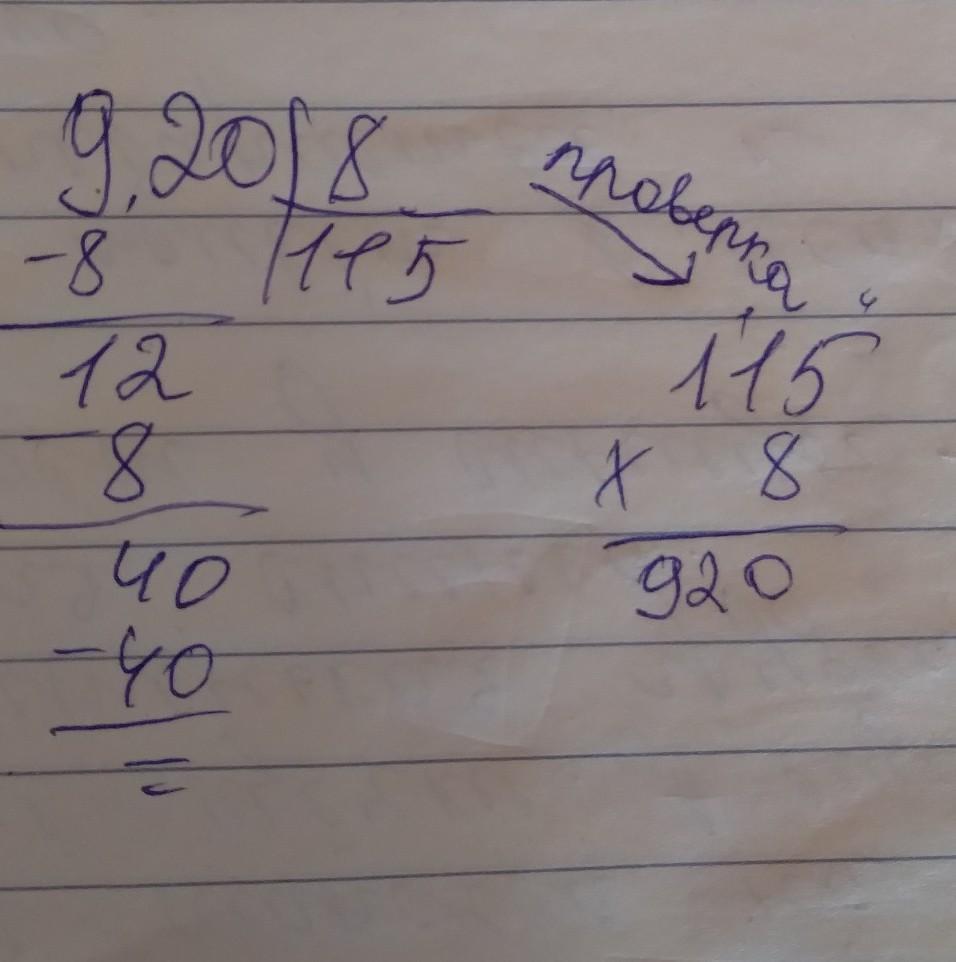 9,20 8
-8 115
12
- 8
40
- 40
=
проверка
115
x 8
920